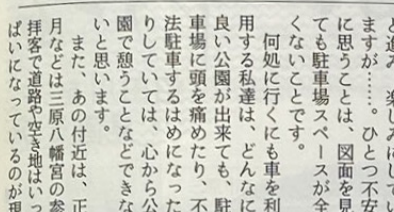 と進み、楽しみにしてい
ますが……。ひとつ不安
に思うことは、図面を見
ても駐車場スペースが全
くないことです。
何処に行くにも車を利
用する私達は、どんなに
良い公園が出来ても、駐
車場に頭を痛めたり、不
法駐車するはめになった
りしていては、心から公
園で憩うことなどできな
いと思います。
また、あの付近は、正
月などは三原八幡宮の参
拝客で道路や空き地はいっ
ぱいになっているのが現